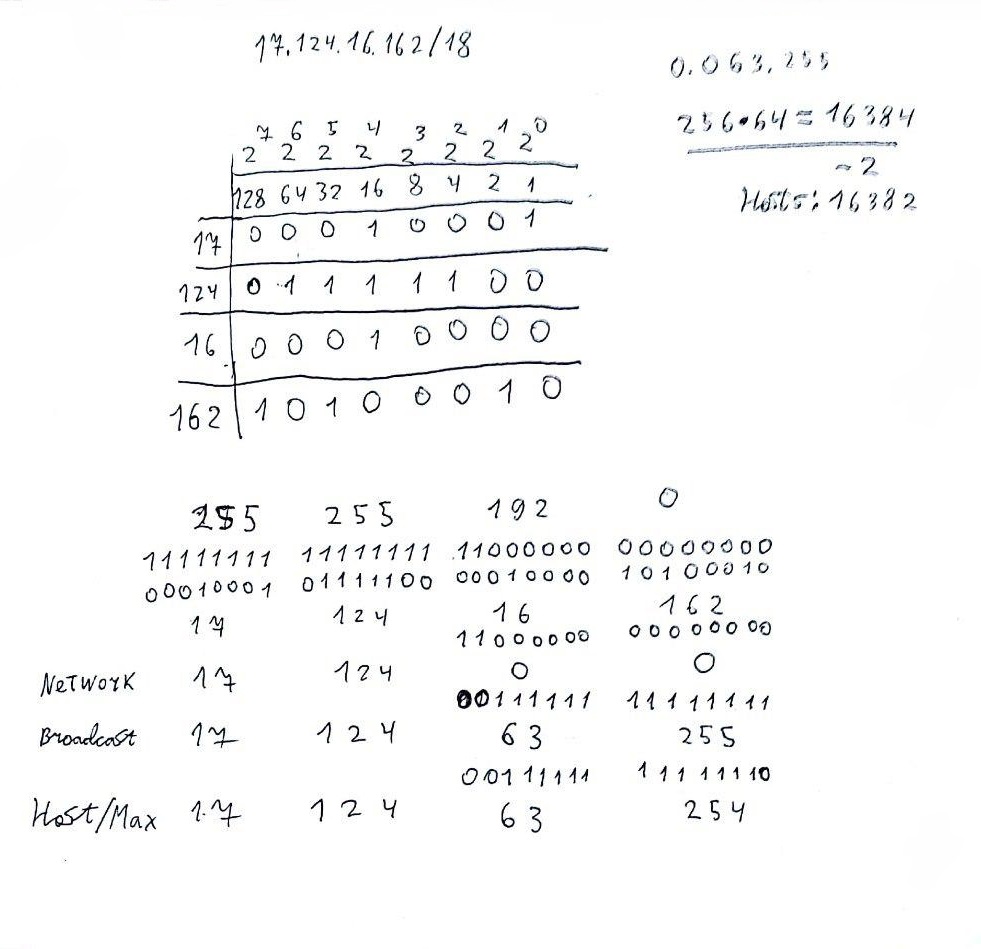 17.124.16.162/18
0.063.255
256•64=16384
-2
Hosts: 16382
7 6 5 4 3 2 1 0
2 2 2 2 2 2 2 2
128 64 32 16 8 4 2 1
17 0 0 0 1 0 0 0 1
124 0 1 1 1 1 1 0 0
16 0 0 0 1 0 0 0 0
162 1 0 1 0 0 0 1 0
255 255 192 0
11111111 11111111 11000000 00000000
00010001 01111100 00010000 10100010
17 124 16 162
11000000 00000000
Network 17 124 0 0
00111111 11111111
Broadcast 17 124 63 255
00111111 11111110
Host/Max 17 124 63 254